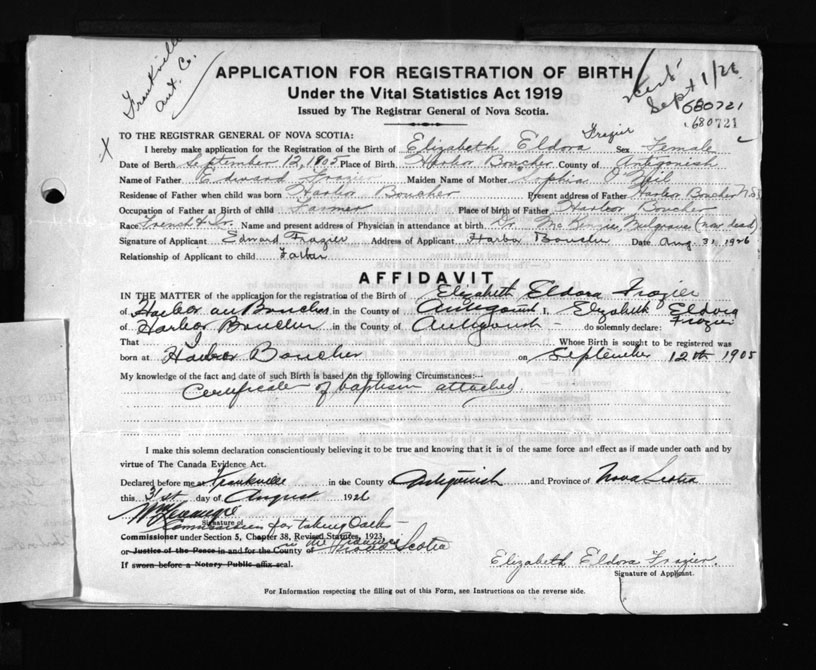 Frankville
Ant. Co.
APPLICATION FOR REGISTRATION OF BIRTH
Under the Vital Statistics Act 1919
Issued by The Registrar General of Nova Scotia.
Sept 1/26
680721
680721
TO THE REGISTRAR GENERAL OF NOVA SCOTIA:
Frazier
I hereby make application for the Registration of the Birth of Elizabeth Eldora Sex Female
Date of Birth September 12, 1905 Place of Birth Harbor Boucher County of Antigonish
Name of Father Edward Frazier Maiden Name of Mother Sophia O'Neil
Residence of Father when child was born Harbor Boucher Present address of Father Harbor Boucher N.S
Occupation of Father at Birth of child Farmer Place of birth of Father Harbor Boucher
Race French & Ir. Name and present address of Physician in attendance at birth. Dr. McKenzie, Mulgrave (now dead)
Signature of Applicant Edward Frazier Address of Applicant Harbor Boucher Date Aug. 31, 1926
Relationship of Applicant to child Father
AFFIDAVIT
IN THE MATTER of the application for the registration of the Birth of Elizabeth Eldora Frazier
of Harbor au Bouche in the County of Antigonish I, Elizabeth Eldora
Frazier
of Harbor Boucher in the County of Antigonish do solemnly declare:
That I Whose Birth is sought to be registered was
born at Harbor Boucher on September 12th 1905
My knowledge of the fact and date of such Birth is based on the following Circumstances:—
Certificate of baptism attached.
I make this solemn declaration conscientiously believing it to be true and knowing that it is of the same force and effect as if made under oath and by
virtue of The Canada Evidence Act.
Declared before me at Frankville in the County of Antigonish and Province of Nova Scotia
this 31st day of August 1926
Signature of
Commissioner for taking Oath
Commissioner under Section 5, Chapter 38, Revised Statutes, 1923,
in the Province
or Justice of the Peace in and for the County of Nova Scotia
If sworn before a Notary Public affix seal.
Elizabeth Eldora Frazier
Signature of Applicant.
For Information respecting the filling out of this Form, see Instructions on the reverse side.